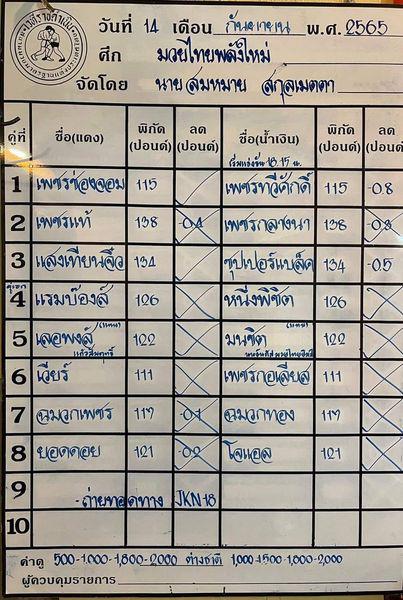 วันที่ 14 เดือน กันยายน พ.ศ. 2565
ศึก มวยไทยพลังใหม่
จัดโดย นาย สมหมาย สกุลเมตตา
คู่ที่ ชื่อ(แดง) พิกัด (ปอนด์) ลด (ปอนด์) ชื่อ(น้ำเงิน) พิกัด (ปอนด์) ลด (ปอนด์)
เริ่มแข่งขัน 18.15 น.
1 เพชรช่องจอม 115 เพชรทวีศักดิ์ 115 -0.8
2 เพชรแท้ 138 -0.4 เพชรกลางนา 138 -0.3
3 แสงเทียนจิ๋ว 134 ซุปเปอร์แบล็ค 134 -0.5
คู่เอก
4 แรมบ๊องส์ 126 หนึ่งพิชิต 126
5 เลอพงส์ (แทน) 122 มนชิต (แทน) 122
6 เวียร์ 111 เพชรกอเลียส 111
7 ฉมวกเพชร 117 -0.1 ฉมวกทอง 117
8 ยอดดอย 121 -0.2 โจแอล 121
9
- ถ่ายทอดทาง JKN-18
10
ค่าดู 500-1,000-1,800-2000 ต่างชาติ 1,000-1500-1,800-2,000
ผู้ควบคุมรายการ